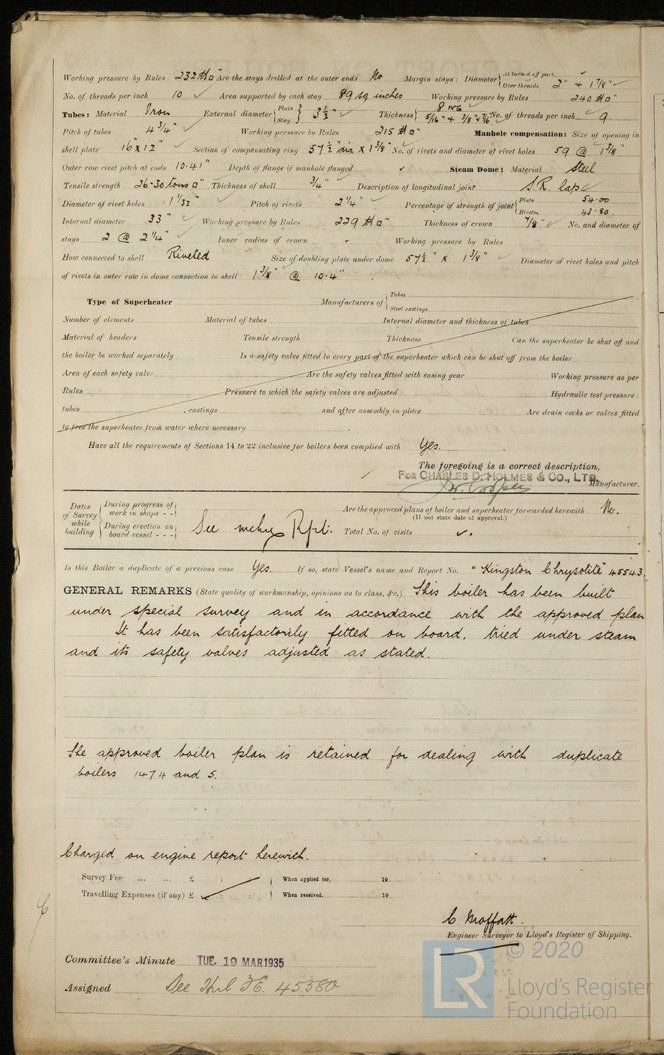 Working pressure by Rules 232 lb □" Are the stays drilled at the outer ends No Margin stays: Diameter { At turned off part, Over threads 2" & 1 7/8"
No. of threads per inch 10 Area supported by each stay 89 sq inches Working pressure by Rules 240 lb □"
Tubes: Material Iron External diameter { Plain Stay 3 1/2" Thickness { 8 WG 5/16" & 3/8" & 7/16" No. of threads per inch 9
Pitch of tubes 4 3/4" Working pressure by Rules 215 lb □" Manhole compensation: Size of opening in
shell plate 16" x 12" Section of compensating ring 57 1/2" dia x 1 3/8" No. of rivets and diameter of rivet holes 59 @ 1 3/8"
Outer row rivet pitch at ends 10.41" Depth of flange if manhole flanged Steam Dome: Material Steel
Tensile strength 26-30 tons □" Thickness of shell 3/4" Description of longitudinal joint S.R. lap
Diameter of rivet holes 1 1/32" Pitch of rivets 2 1/4" Percentage of strength of joint { Plate 54.00 Rivets 43.80
Internal diameter 33" Working pressure by Rules 229 lb □" Thickness of crown 7/8" No. and diameter of
stays 2 @ 2 1/4" Inner radius of crown Working pressure by Rules
How connected to shell Riveted Size of doubling plate under dome 57 1/2" x 1 3/8" Diameter of rivet holes and pitch
of rivets in outer row in dome connection to shell 1 3/8" @ 10.4"
Type of Superheater Manufacturers of { Tubes Steel castings
Number of elements Material of tubes Internal diameter and thickness of tubes
Material of headers Tensile strength Thickness Can the superheater be shut off and
the boiler be worked separately Is a safety valve fitted to every part of the superheater which can be shut off from the boiler
Area of each safety valve Are the safety valves fitted with easing gear Working pressure as per
Rules Pressure to which the safety valves are adjusted Hydraulic test pressure:
tubes , castings and after assembly in place Are drain cocks or valves fitted
to free the superheater from water where necessary
Have all the requirements of Sections 14 to 22 inclusive for boilers been complied with Yes.
The foregoing is a correct description,
FOR CHARLES D. HOLMES & CO., LTD.
Manufacturer.
Dates of Survey while building { During progress of work in shops - - During erection on board vessel - - - } See mchy Rpt. Are the approved plans of boiler and superheater forwarded herewith No.
(If not state date of approval.)
Total No. of visits
Is this Boiler a duplicate of a previous case Yes. If so, state Vessel's name and Report No. "Kingston Chrysolite" 45543
GENERAL REMARKS (State quality of workmanship, opinions as to class, &c.) This boiler has been built
under special survey and in accordance with the approved plan
It has been satisfactorily fitted on board, tried under steam
and its safety valves adjusted as stated.
The approved boiler plan is retained for dealing with duplicate
boilers 1474 and 5.
Charged on engine report herewith.
Survey Fee ... ... £ : : When applied for, 19
Travelling Expenses (if any) £ : : When received, 19
C. Moffatt.
Engineer Surveyor to Lloyd's Register of Shipping.
Committee's Minute TUE. 19 MAR 1935
Assigned See Hul F.E. 45580
LR
© 2020
Lloyd's Register
Foundation